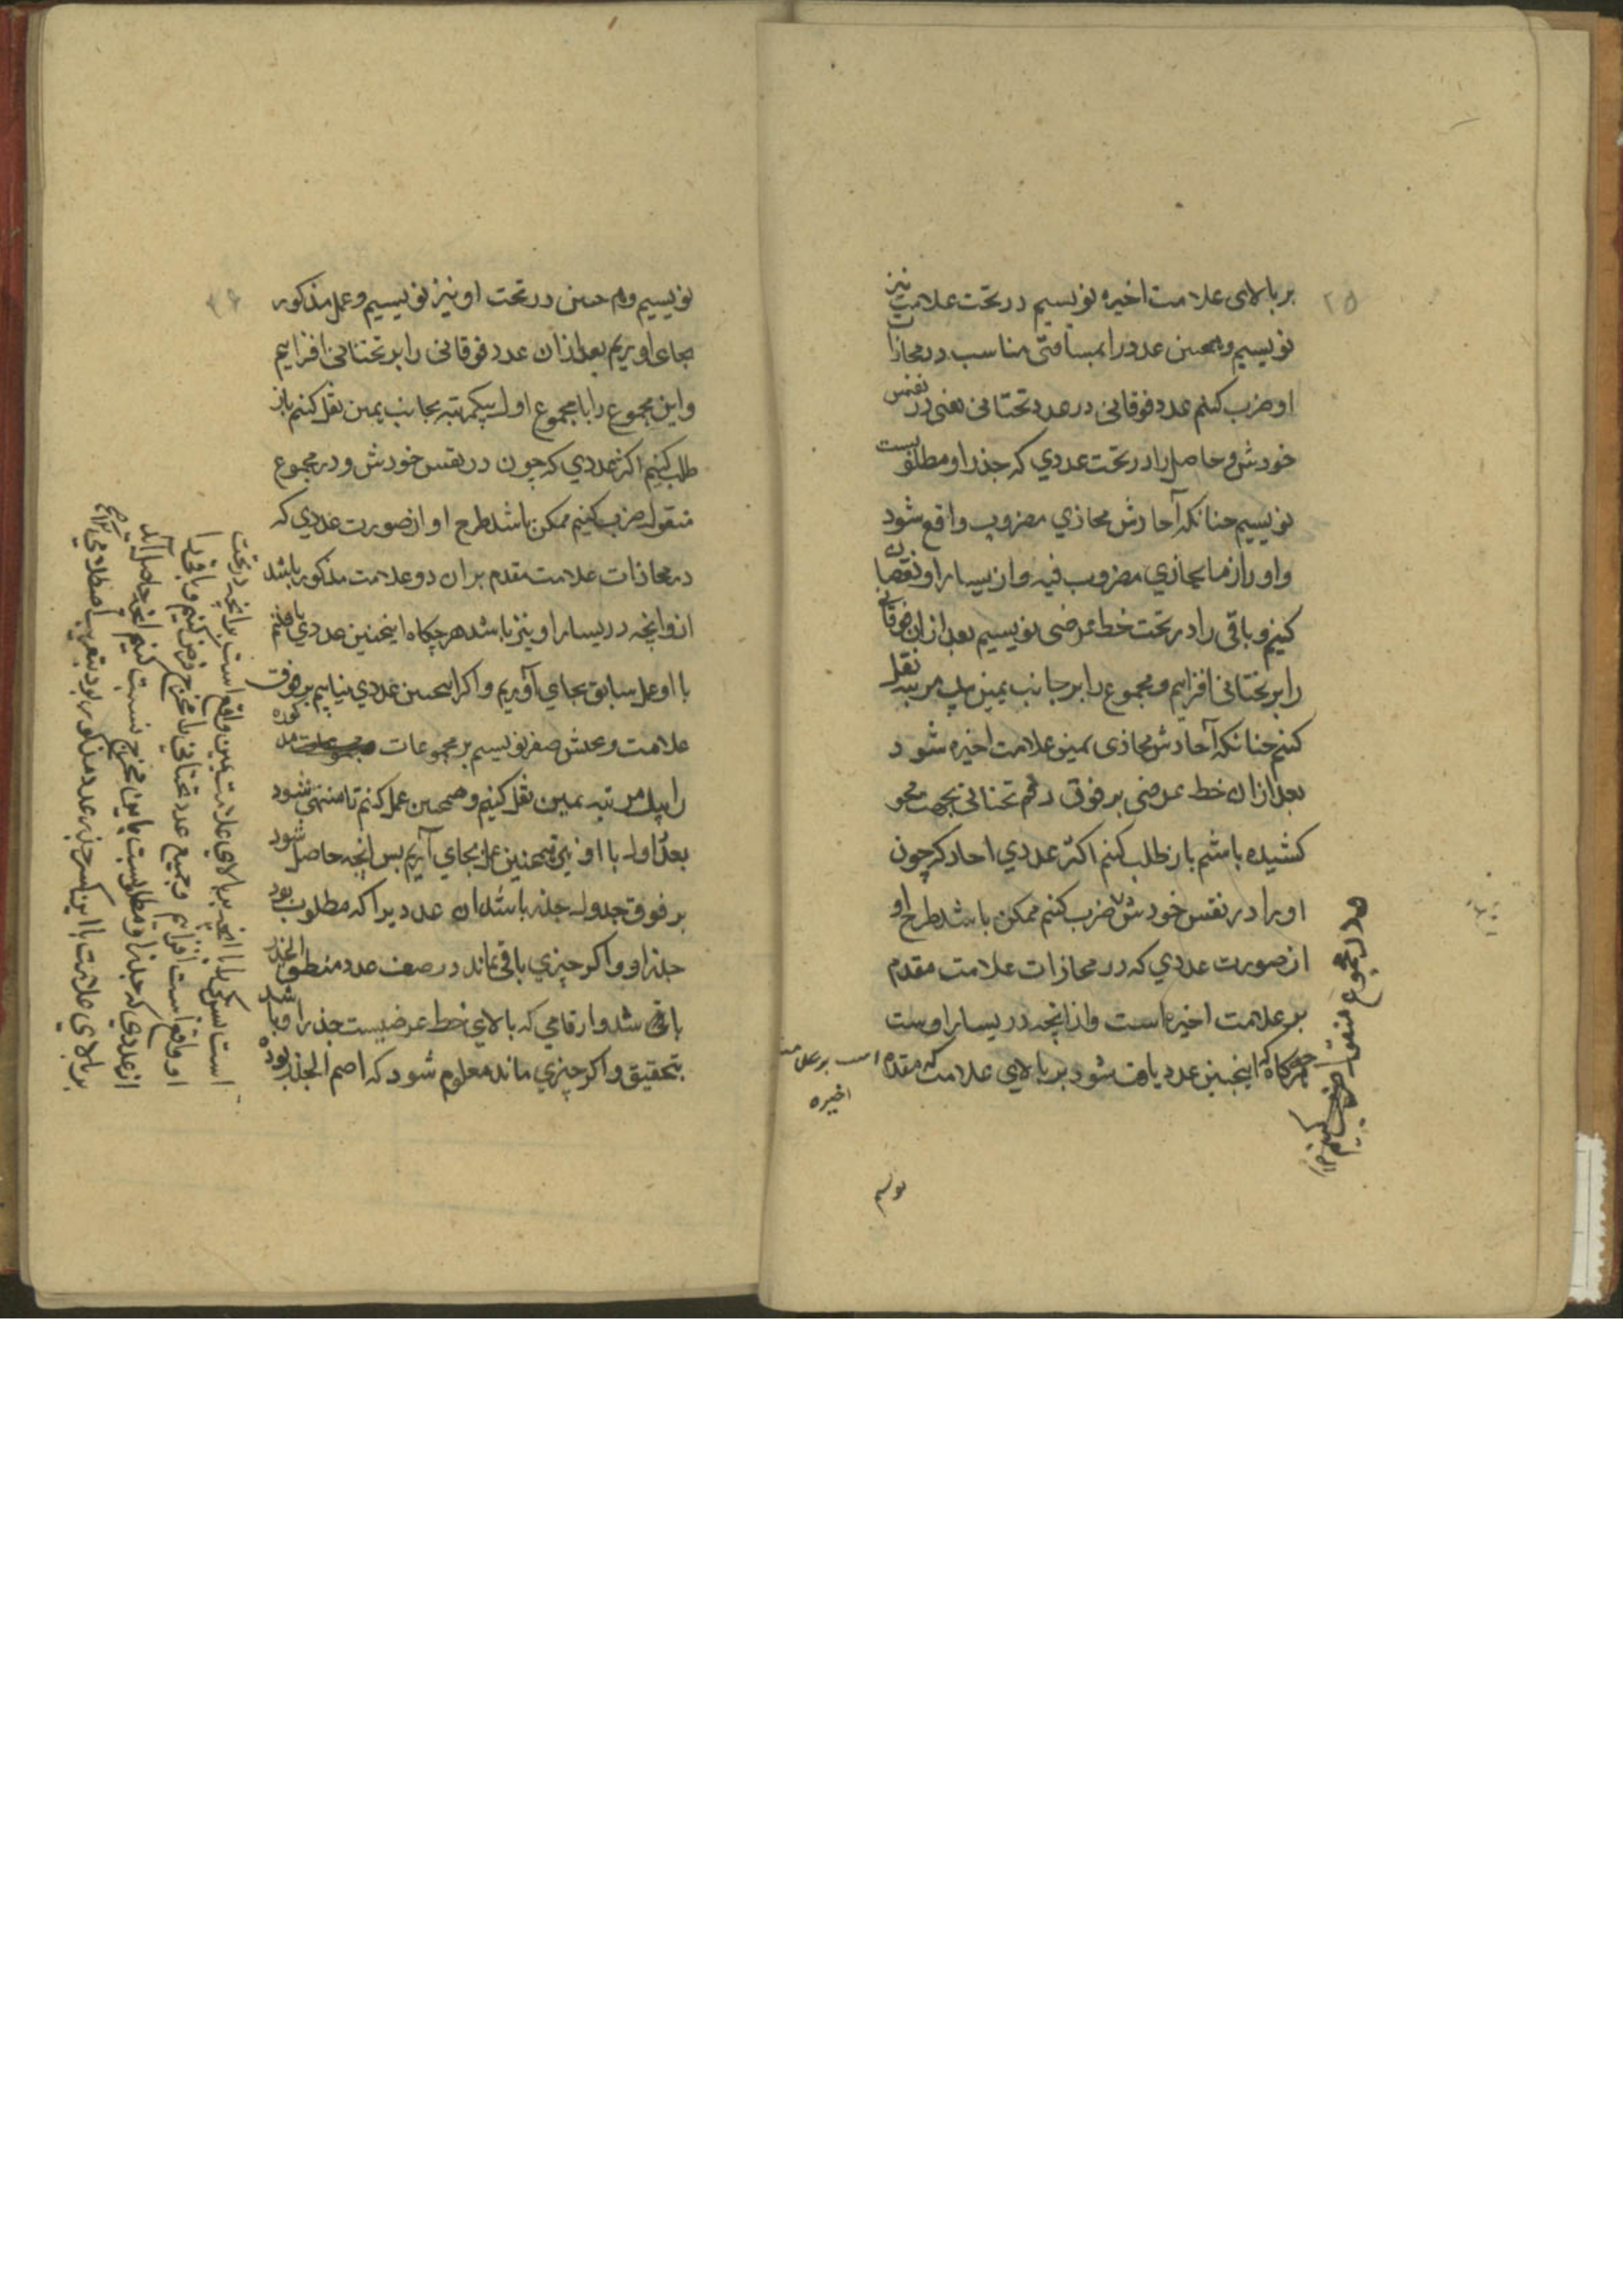 ۲۵
بر بالای علامت اخیره نویسیم در تحت علامت نیز
نویسیم و همچنین عدد را بمسافتی مناسب در محاذات
او ضرب کنیم عدد فوقانی در عدد تحتانی یعنی در نفس
خودش و حاصل را در تحت عددي که جذر او مطلوبست
نویسیم چنانکه آحادش محاذي مضروب واقع شود
و او را از ما یحاذي مضروب فیه و از یسار او نقصان
کنیم و باقی را در تحت خط عرضی نویسیم بعد از ان فوقانی
را بر تحتانی افزاییم و مجموع را بر جانب یمین یک مرتبه نقل
کنیم چنانکه آحادش محاذی یمین علامت اخیره شود
بعد از ان خط عرضی بر فوق رقم تحتانی بجهت محو
کشیده باشیم باز طلب کنیم اکثر عددي احاد که چون
او را در نفس خودش ضرب کنیم ممکن باشد طرح او
از صورت عددي که در محاذات علامت مقدم
بر علامت اخیره است و از آنچه در یسار اوست
هرگاه که اینچنین عدد یافت شود بر بالای علامت که مقدم است بر علامت
اخیره
و در مجموع منقول
نویسیم
۲۶
نویسیم و همچنین در تحت او نیز نویسیم و عمل مذکور
بجای اوریم بعد از ان عدد فوقانی را بر تحتانی افزاییم
و این مجموع را با مجموع اول بیکمرتبه بجانب یمین نقل کنیم باز
طلب کنیم اکثر عددي که چون در نفس خودش و در مجموع
منقول ضرب کنیم ممکن باشد طرح او از صورت عددي که
در محاذات علامت مقدم بر ان دو علامت مذکور باشد
از و انچه در یسار او نیز باشد هرچگاه اینچنین عددي یافتیم
با او عمل سابق بجاي آوریم و اگر اینچنین عددي نیابیم بر فوق
علامت و تحتش صفر نویسیم بر مجموعات مذکوره
را یک مرتبه یمین نقل کنیم و همچنین عمل کنیم تا منتهی شود
بعد اول با او نیز همچنین عمل بجاي آریم پس انچه حاصل شود
بر فوق جدول جذر باشد ان عدد یرا که مطلوب بود
جذر او و اگر چیزي باقی نماند در صف عدد منطق الجذر
باشد و ارقامي که بالاي خط عرضیست جذر او باشد
بتحقیق و اگر چیزي ماند معلوم شود که اصم الجذر بوده
است پس یک را با انچه بر بالای علامت یمین واقع است بر انچه در تحت
او واقع است افزاییم و جمیع عدد تحتانی را مخرج فرض کنیم و باقی را
از عددي که جذر او مطلوبست باین مخرج نسبت کنیم انچه حاصل آید
بر بالاي علامت با این کسر جذر عدد مذکور بود بتقریب اصطلاحی